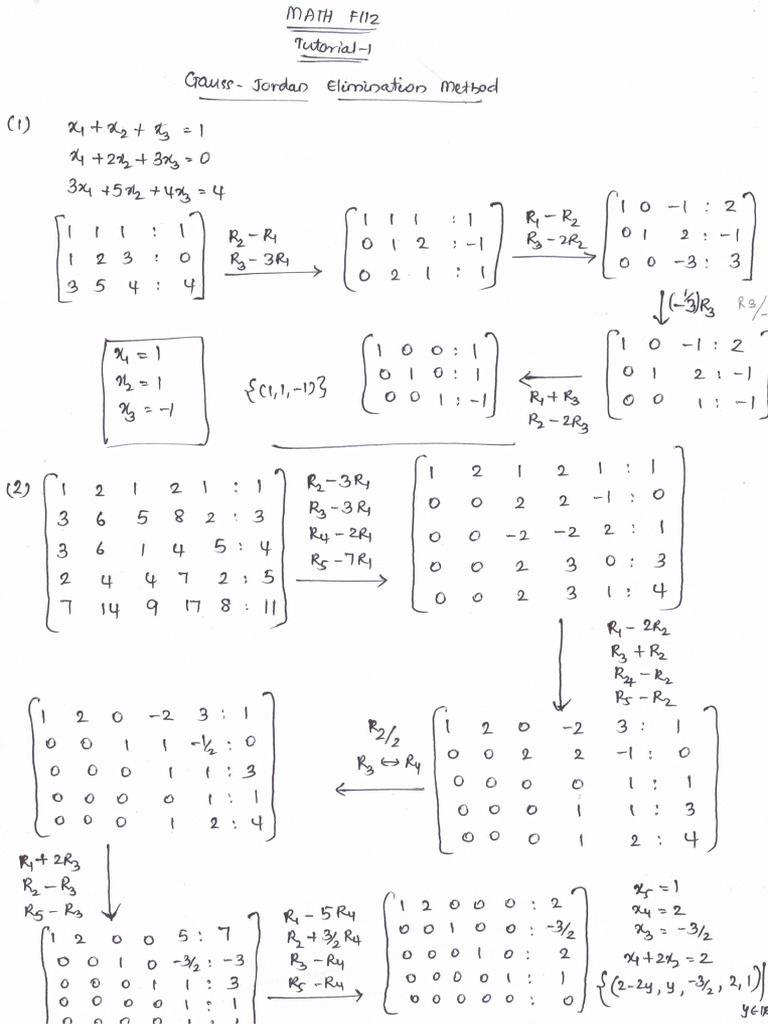 MATH F112
Tutorial-1
Gauss-Jordan Elimination Method
(1) x₁ + x₂ + x₃ = 1
x₁ + 2x₂ + 3x₃ = 0
3x₁ + 5x₂ + 4x₃ = 4
1 1 1 : 1
1 2 3 : 0
3 5 4 : 4
R₂ - R₁
R₃ - 3R₁
1 1 1 : 1
0 1 2 : -1
0 2 1 : 1
R₁ - R₂
R₃ - 2R₂
1 0 -1 : 2
0 1 2 : -1
0 0 -3 : 3
(-1/3)R₃
R3/-
1 0 -1 : 2
0 1 2 : -1
0 0 1 : -1
R₁ + R₃
R₂ - 2R₃
1 0 0 : 1
0 1 0 : 1
0 0 1 : -1
{(1,1,-1)}
x₁ = 1
x₂ = 1
x₃ = -1
(2)
1 2 1 2 1 : 1
3 6 5 8 2 : 3
3 6 1 4 5 : 4
2 4 4 7 2 : 5
7 14 9 17 8 : 11
R₂ - 3R₁
R₃ - 3R₁
R₄ - 2R₁
R₅ - 7R₁
1 2 1 2 1 : 1
0 0 2 2 -1 : 0
0 0 -2 -2 2 : 1
0 0 2 3 0 : 3
0 0 2 3 1 : 4
R₁ - 2R₂
R₃ + R₂
R₄ - R₂
R₅ - R₂
1 2 0 -2 3 : 1
0 0 2 2 -1 : 0
0 0 0 0 1 : 1
0 0 0 1 1 : 3
0 0 0 1 2 : 4
R₂/2
R₃ ↔ R₄
1 2 0 -2 3 : 1
0 0 1 1 -1/2 : 0
0 0 0 1 1 : 3
0 0 0 0 1 : 1
0 0 0 1 2 : 4
R₁ + 2R₃
R₂ - R₃
R₅ - R₃
1 2 0 0 5 : 7
0 0 1 0 -3/2 : -3
0 0 0 1 1 : 3
0 0 0 0 1 : 1
R₁ - 5R₄
R₂ + 3/2 R₄
R₃ - R₄
R₅ - R₄
1 2 0 0 0 : 2
0 0 1 0 0 : -3/2
0 0 0 1 0 : 2
0 0 0 0 1 : 1
0 0 0 0 0 : 0
x₅ = 1
x₄ = 2
x₃ = -3/2
x₁ + 2x₂ = 2
{(2-2y, y, -3/2, 2, 1)|
y∈